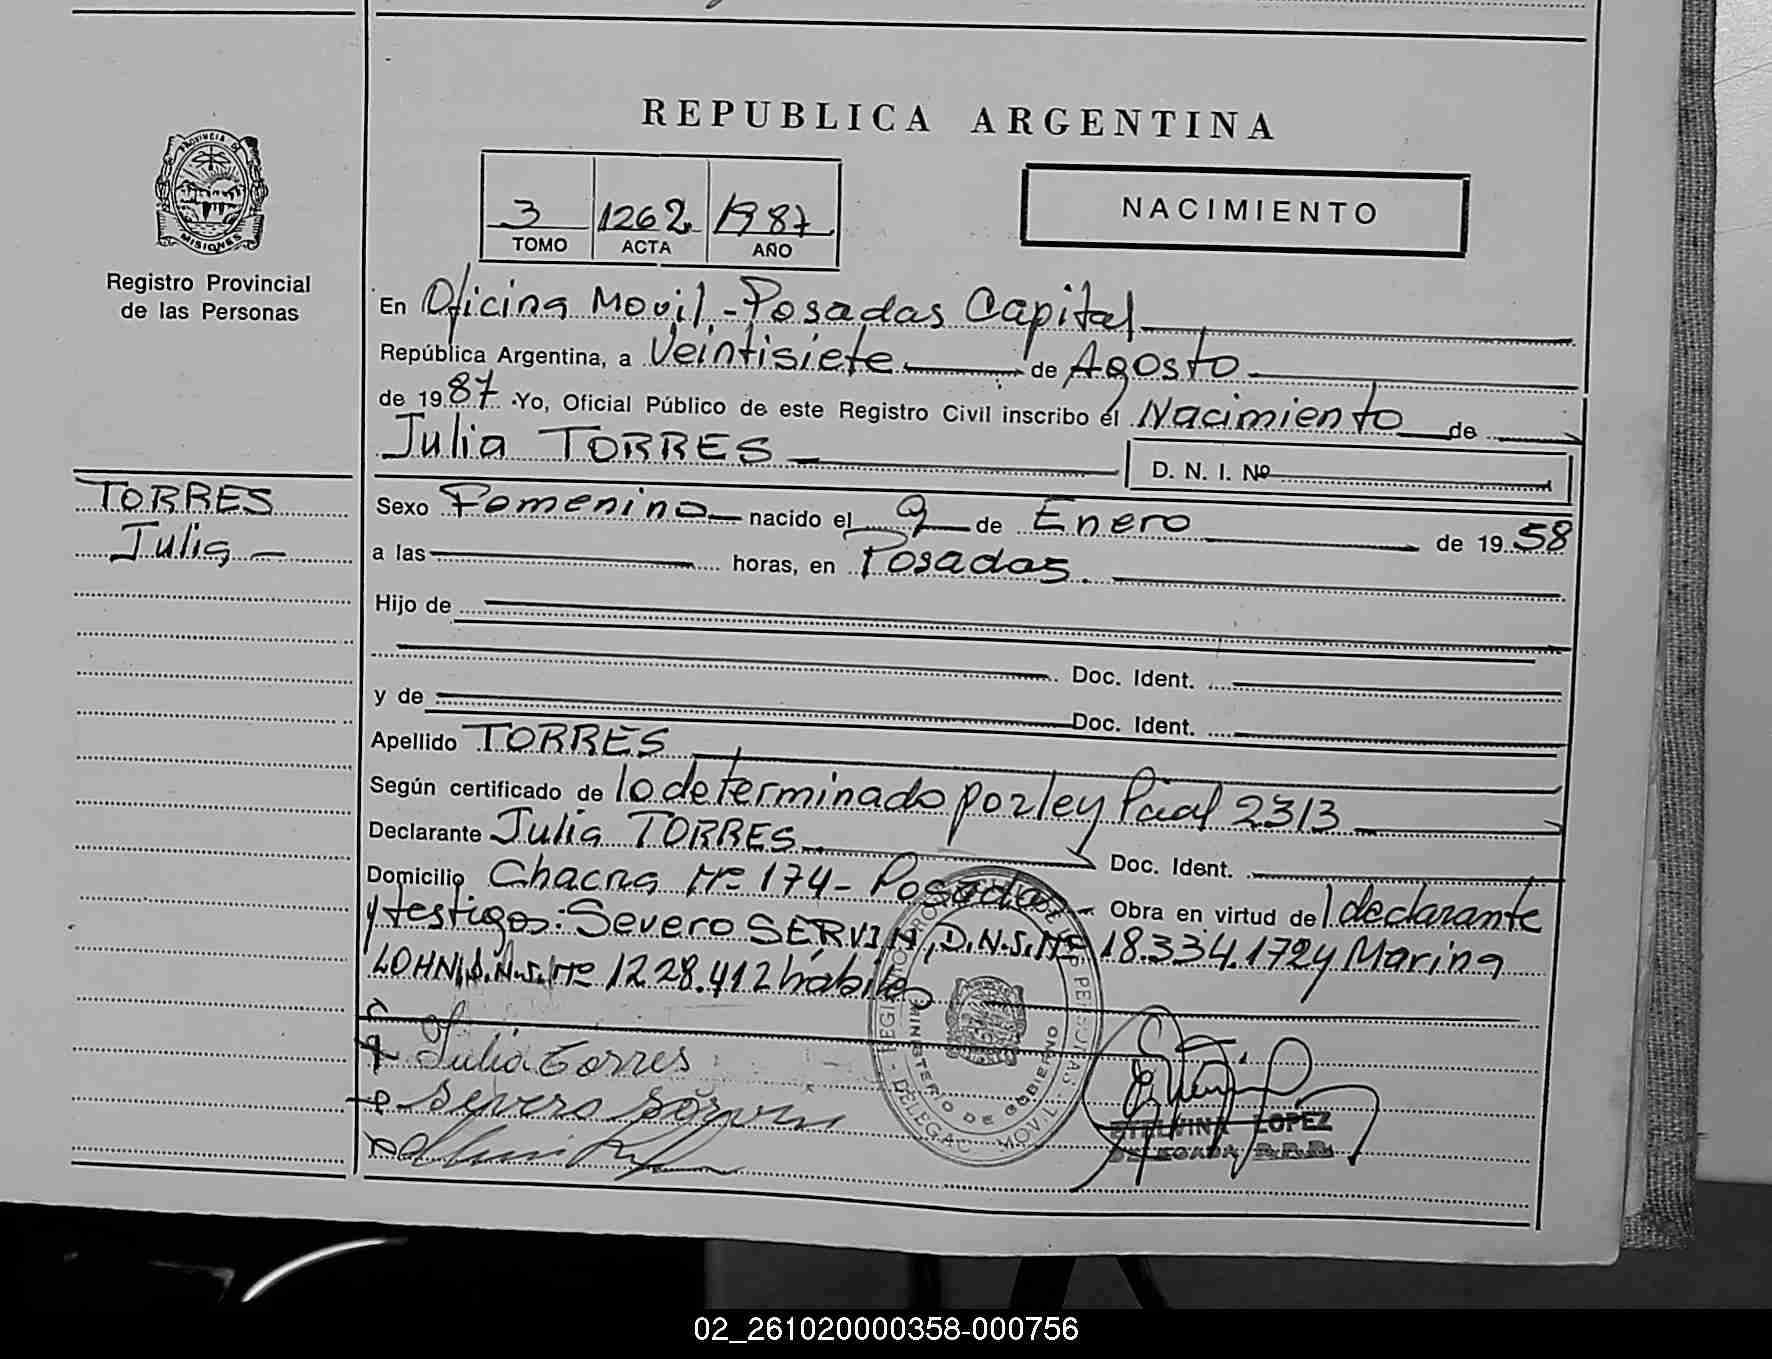 REPUBLICA ARGENTINA
PROVINCIA DE MISIONES
Registro Provincial
de las Personas
3 1262 1987
TOMO ACTA AÑO
NACIMIENTO
En Oficina Movil - Posadas Capital
República Argentina, a Veintisiete de Agosto
de 1987 Yo, Oficial Público de este Registro Civil inscribo el Nacimiento de
Julia TORRES
D. N. I. Nº
TORRES
Julia
Sexo Femenino nacido el 9 de Enero de 1958
a las horas, en Posadas.
Hijo de
Doc. Ident.
y de Doc. Ident.
Apellido TORRES
Según certificado de lo determinado por ley Pcial 2313
Declarante Julia TORRES Doc. Ident.
Domicilio Chacra Nº 174 - Posadas - Obra en virtud de l declarante
y testigos: Severo SERVIN, D.N.I. Nº 18.334.172 y Marina
LOHN, D.N.I. Nº 1228.412 hábiles
Julia Torres
Severo Servin
REGISTRO PROVINCIAL DE LAS PERSONAS
MINISTERIO DE GOBIERNO
DELEGAC. MOVIL
ETELVINA LOPEZ
DELEGADA R.P.P.
02_261020000358-000756